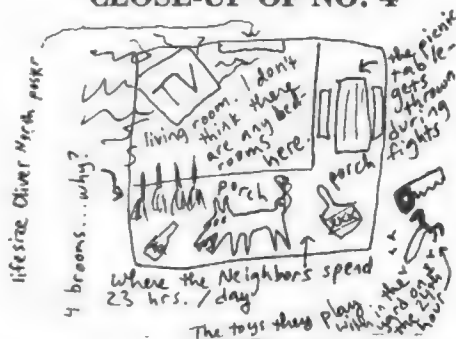 CLOSE-UP OF NO. 4
lifesize Oliver North poster
TV
living room. I don't
think there
are any bed-
rooms
here.
the picnic
table
gets
thrown
during
fights
porch
4 brooms...why?
porch
XXX
where the Neighbors spend
23 hrs./day
The toys they play
with in the
yard on
the 24th
hour